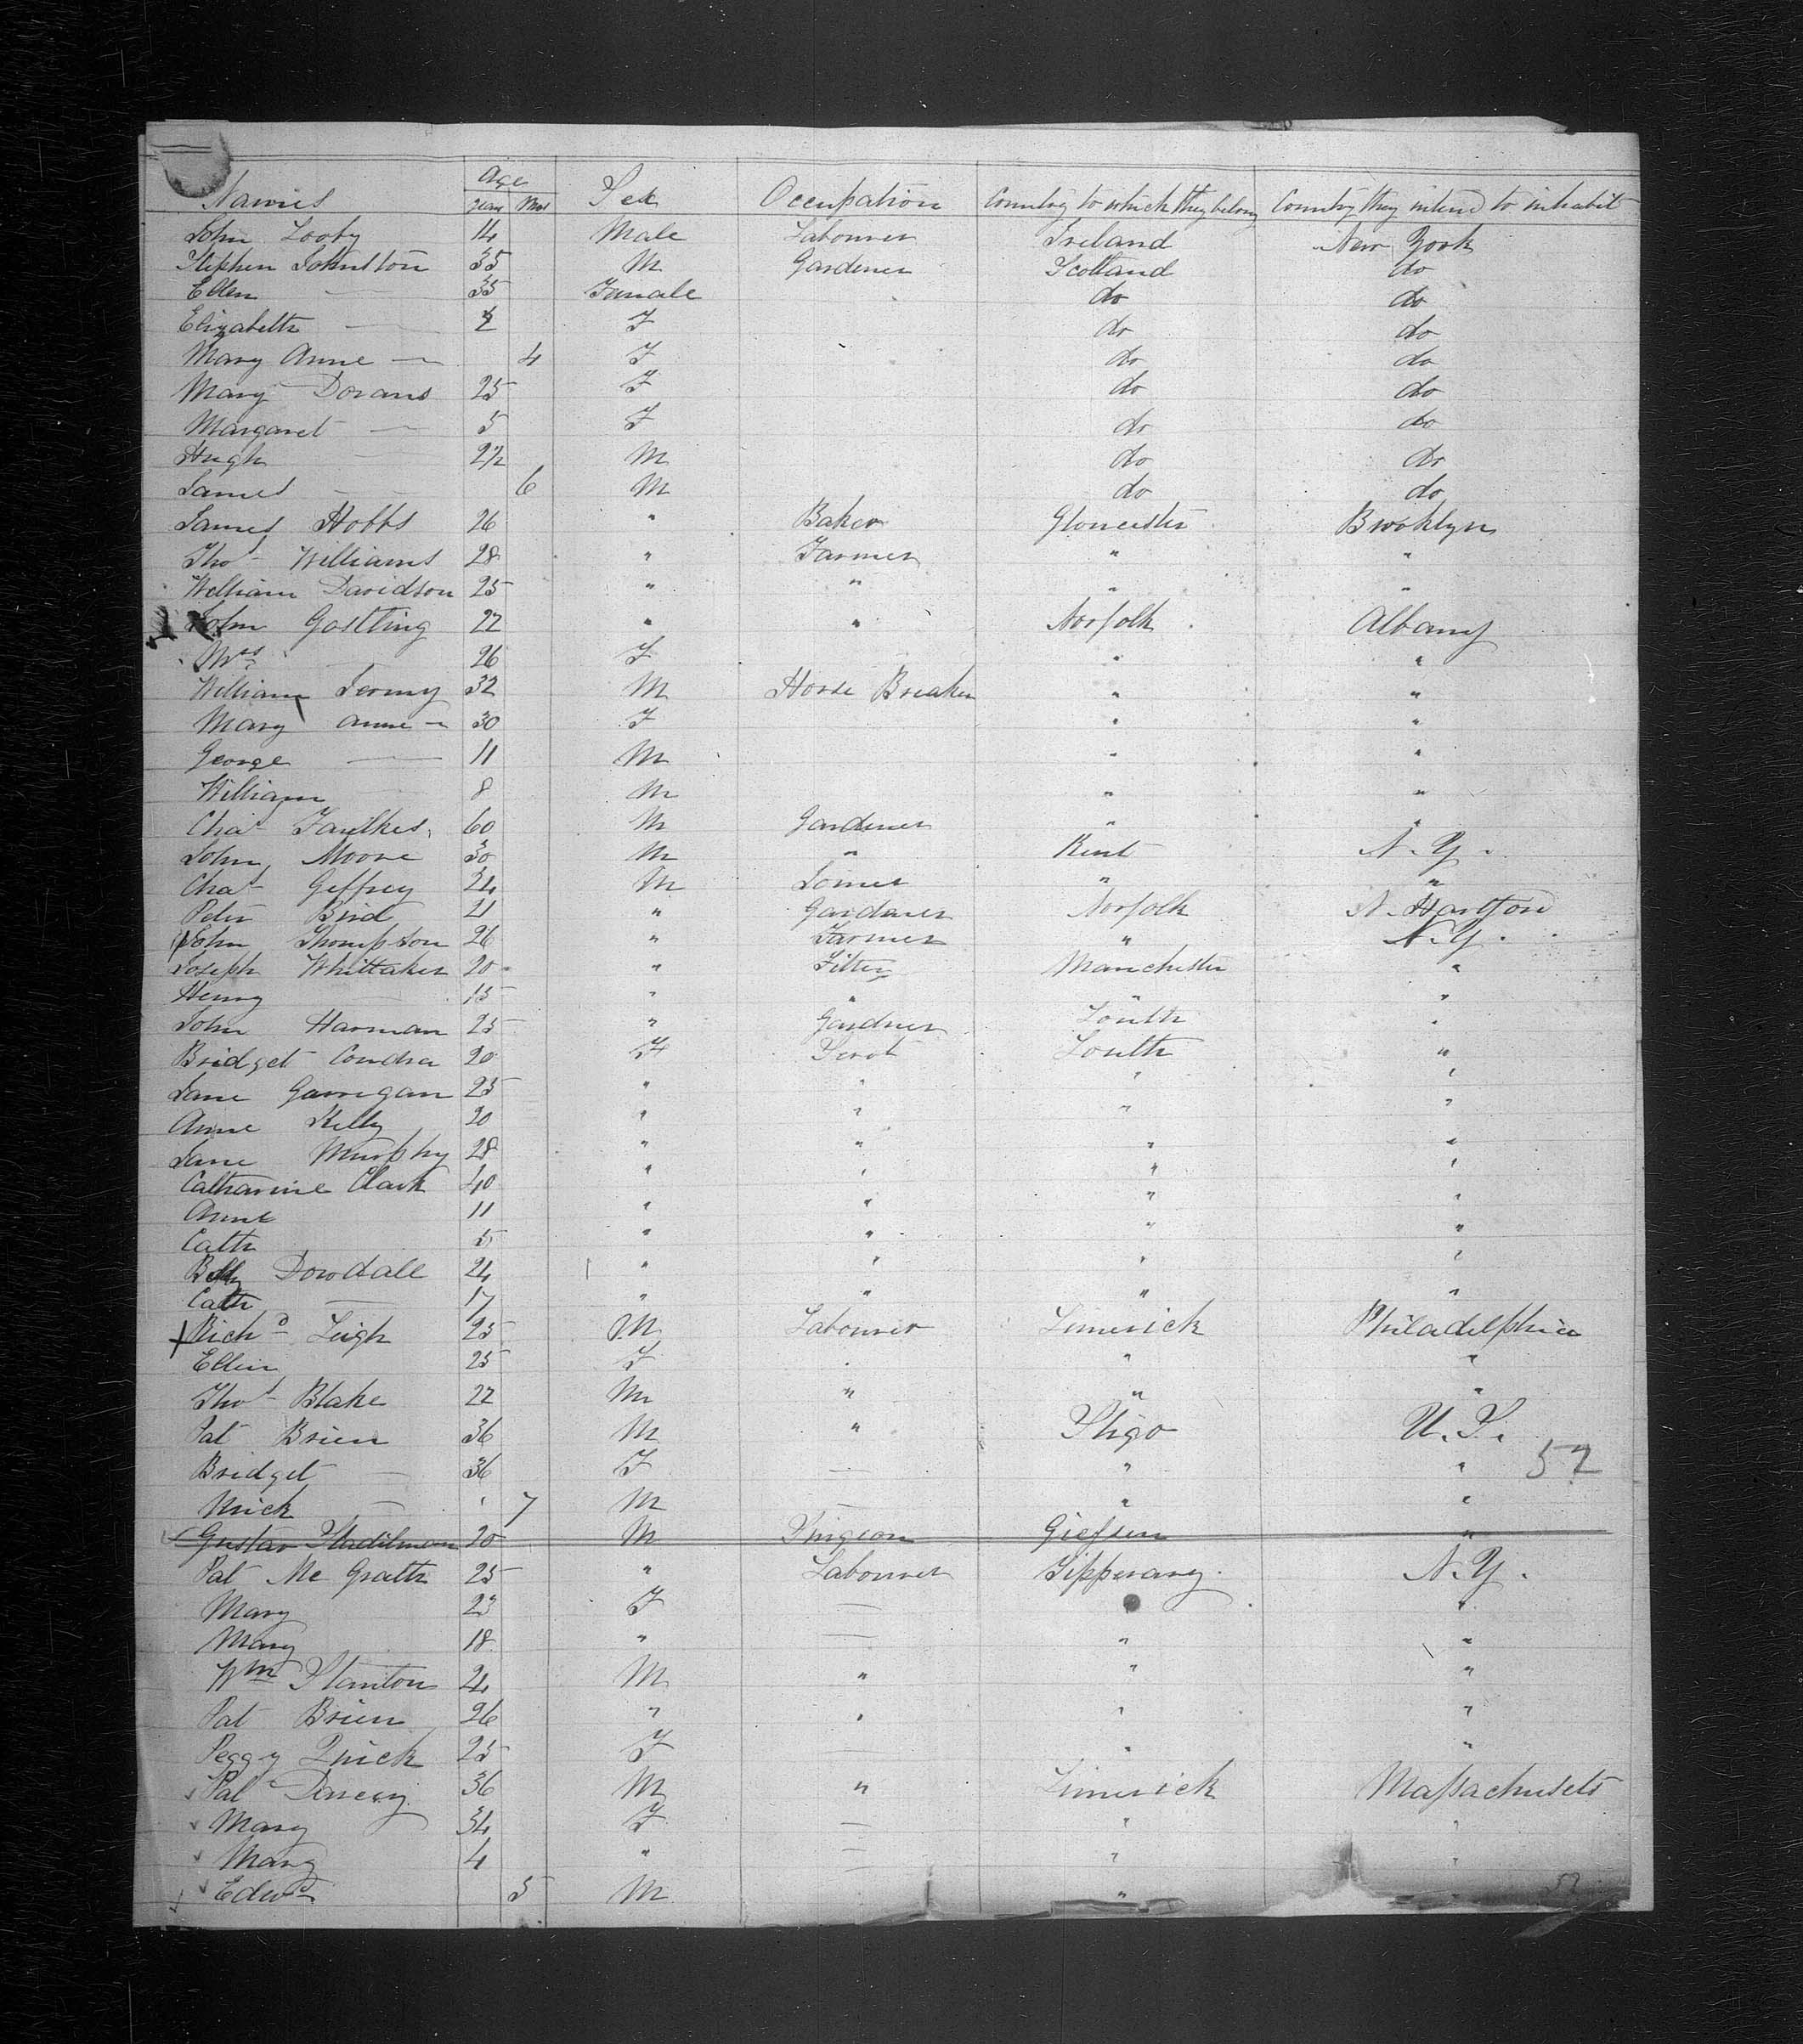 Names Age Sex Occupation Country to which they belong Country they intend to inhabit
Years Mos
John Looby 14 Male Labourer Ireland New York
Stephen Johnston 35 M Gardener Scotland do
Ellen — 35 Female do do
Elizabeth — F do do
Mary Anne — 4 F do do
Mary Dorans 25 F do do
Margaret — 5 F do do
Hugh 2½ M do do
James — 6 M do do
James Hobbs 26 " Baker Gloucester Brooklyn
Thos Williams 28 " Farmer " "
William Davidson 25 " " " "
John Gostling 22 " " Norfolk Albany
Mrs — 26 F " "
William Jermy 32 M Horse Breaker " "
Mary Anne — 30 F " "
George — 11 M " "
William 8 M " "
Chas Faulkes 60 M Gardener " "
John Moore 30 M " Kent N.Y.
Chas Geffrey 24 M Joiner " "
Peter Bird 21 " Gardener Norfolk N. Hartford
John Thompson 26 " Farmer " N.Y.
Joseph Whittaker 20 " Fitter Manchester "
Henry 15 " " " "
John Harman 25 " Gardner Louth "
Bridget Condra 20 F Servt Louth "
Jane Garregan 25 " " " "
Anne Kelly 20 " " " "
Jane Murphy 28 " " " "
Catharine Clark 40 " " " "
Anne 11 " " " "
Cath 5 " " " "
Betty Dowdall 24 " " " "
Cath — 17 " " " "
Richd Leigh 25 M Labourer Limerick Philadelphia
Ellen 25 F " " "
Thos Blake 22 M " " "
Pat Brien 36 M " Sligo U.S.
Bridget — 36 F — " " 52
Mick — " 7 M — " "
Gustav Stadilmann 20 M Surgeon Giessen "
Pat McGrath 25 " Labourer Tipperary N.Y.
Mary 23 F — " "
Mary 18 " — " "
Wm Stanton 24 M " " "
Pat Brien 26 " " " "
Peggy Quick 25 F — " "
Pat Darcey 36 M " Limerick Massachusets
Mary 34 F — " "
Mary 4 " — " "
Edwd 5 M " " 52